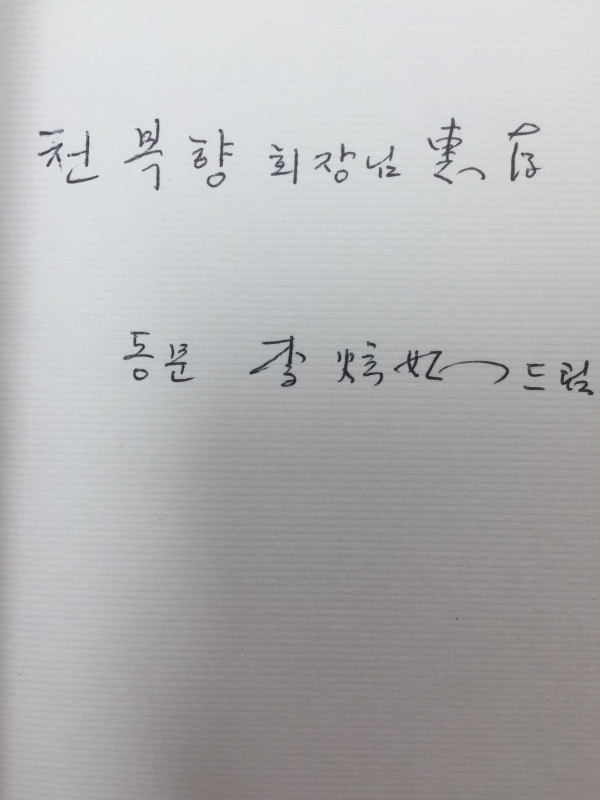 천복향 회장님 惠存
동문 李炫妃 드림